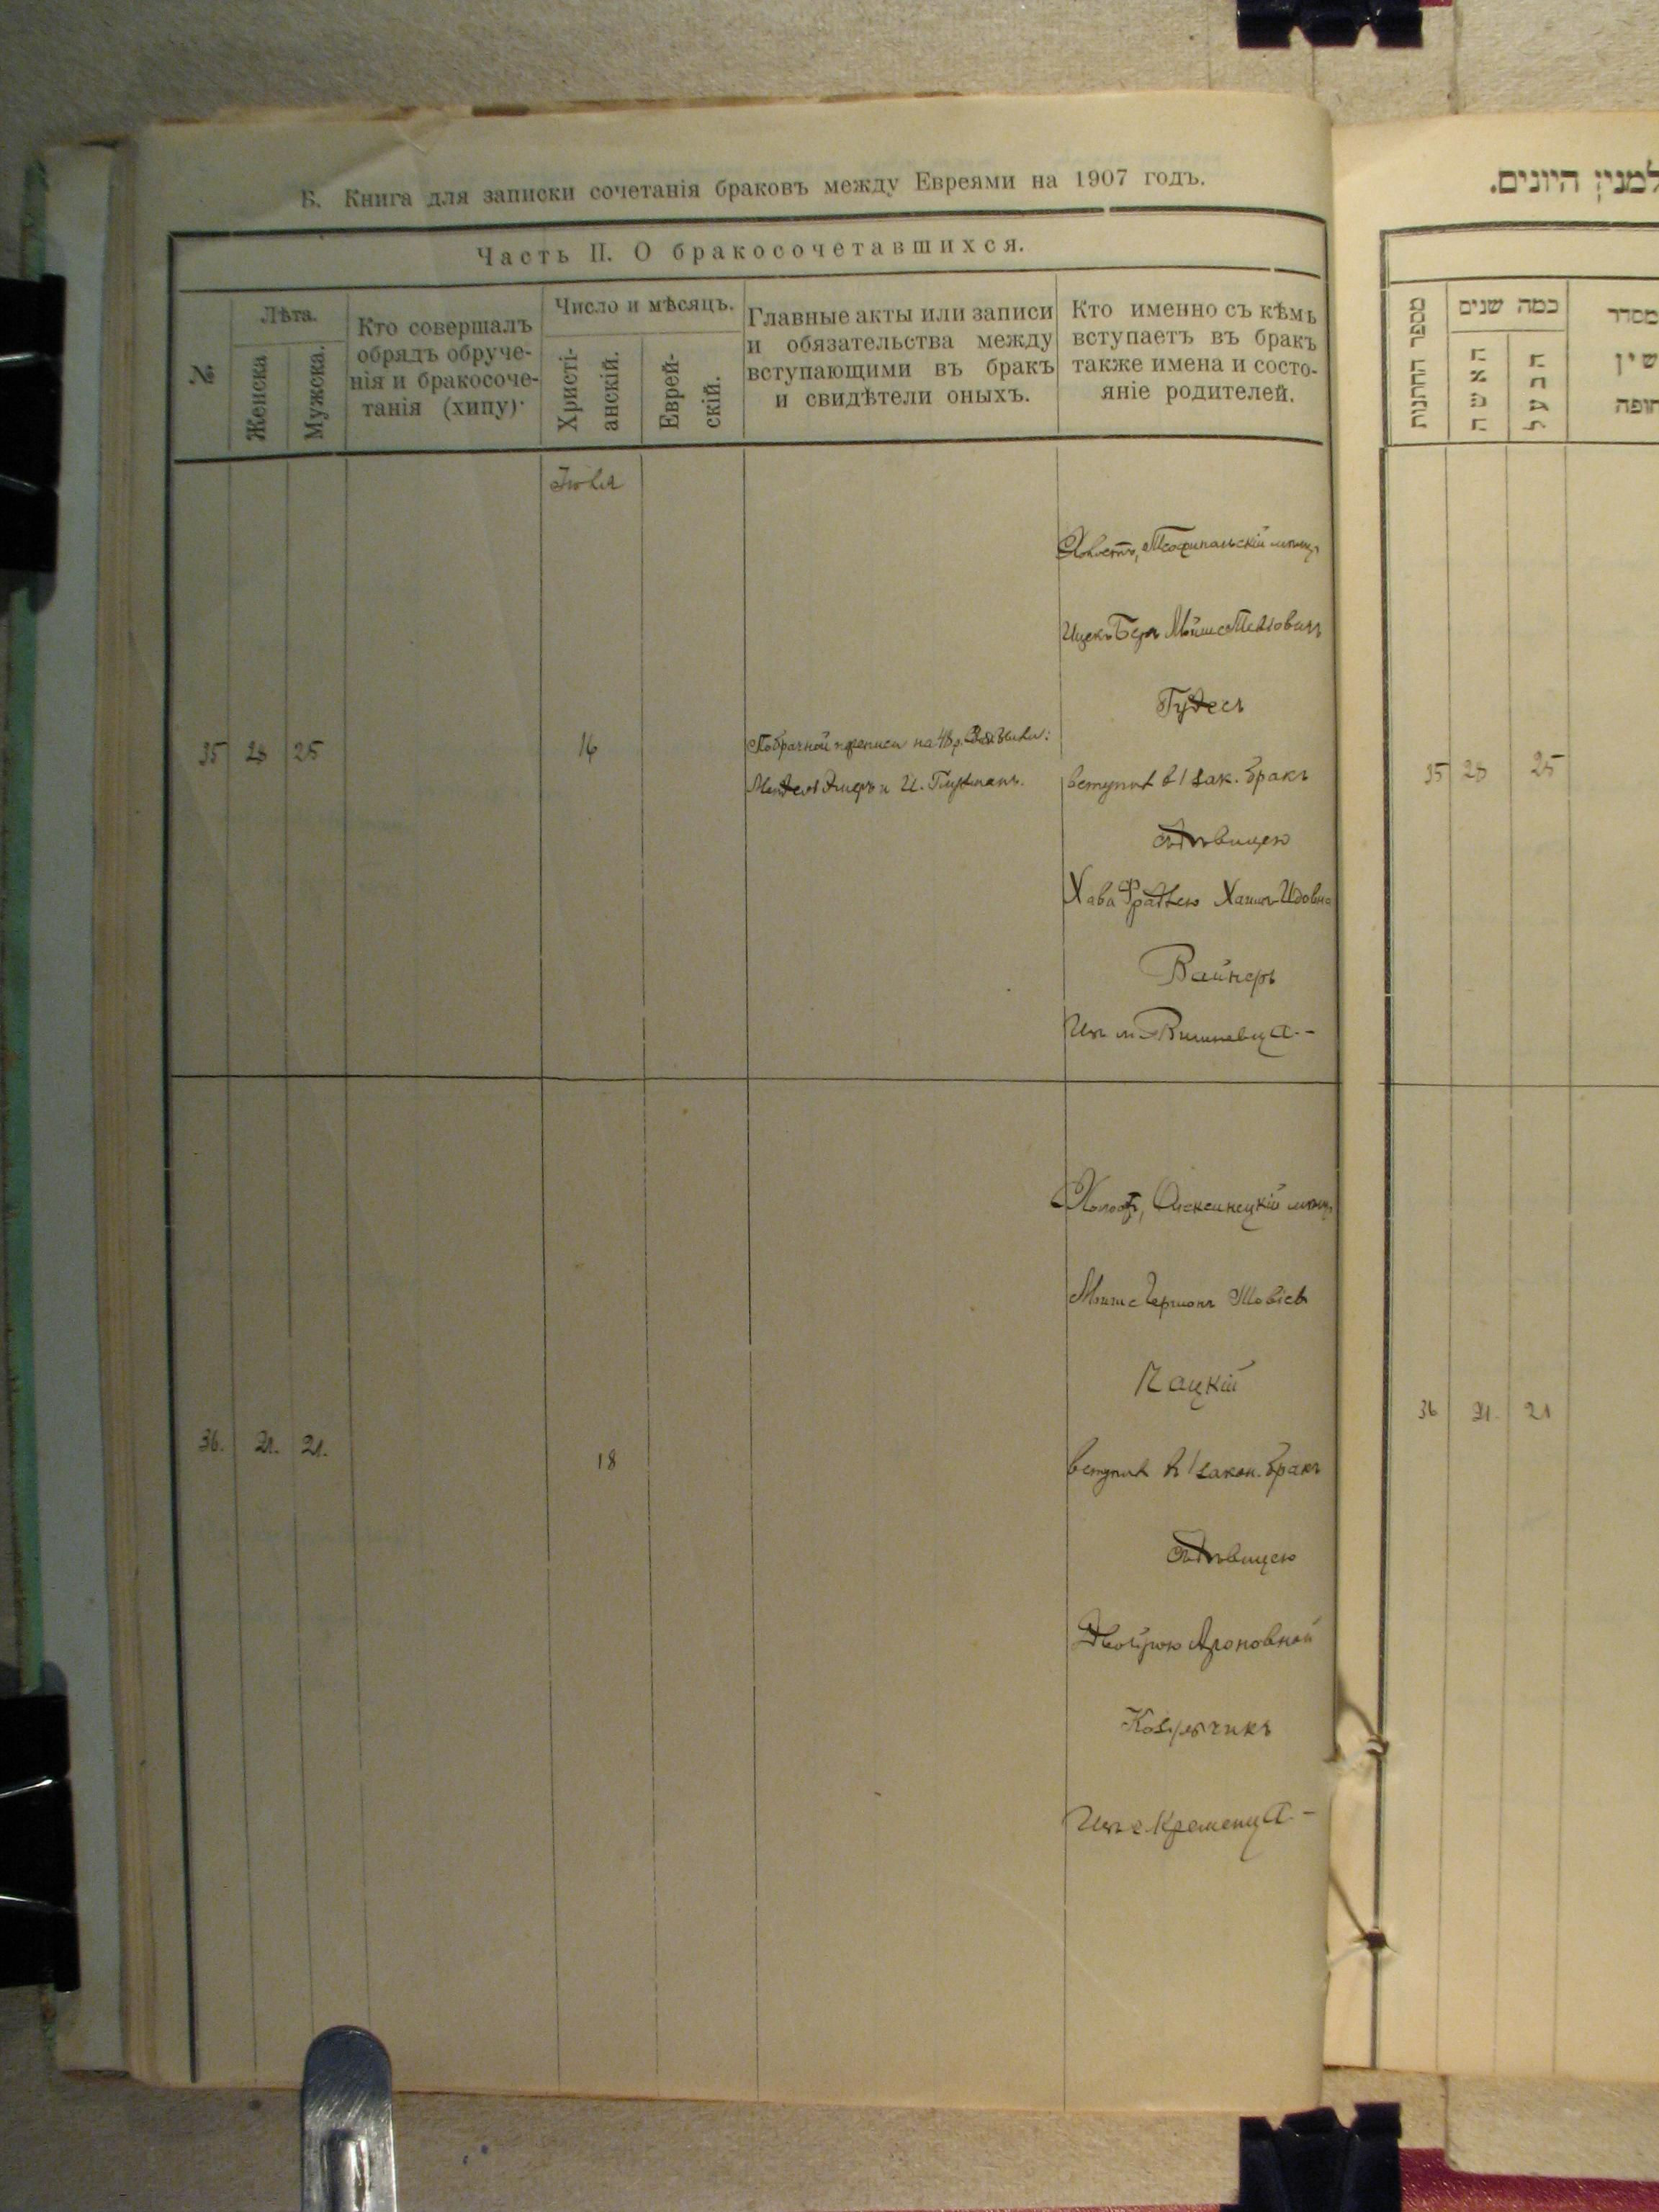 Б. Книга для записки сочетанія браковъ между Евреями на 1907 годъ.
Часть II. О бракосочетавшихся.
№
Лѣта.
Женска
Мужска.
Кто совершалъ
обрядъ обруче-
нія и бракосоче-
танія (хипу).
Число и мѣсяцъ.
Христі-
анскій.
Еврей-
скій.
Главные акты или записи
и обязательства между
вступающими въ бракъ
и свидѣтели оныхъ.
Кто именно съ кѣмъ
вступаетъ въ бракъ
также имена и состо-
яніе родителей.
Іюля
35 25 16
Холостъ, Теофипольскій мѣщ.
Ицекъ Беръ Мойше
Гудесъ
вступил в 1 зак. бракъ
съ дѣвицею
Хава Фрадлею Хаимъ-Идовна
Вайнеръ
Изъ м. Вишневца -
36. 21. 21. 18
Холост, Олексинецкій мѣщ.
Мойше Гершонъ
Чацкій
вступил в 1 закон. бракъ
съ дѣвицею
Двойрою Ароновной
Изъ г. Кременца -
למנין היונים.
מספר החתנות
כמה שנים
האשה
הבעל
מסדר
שין
חופה
35 25
36 21. 21